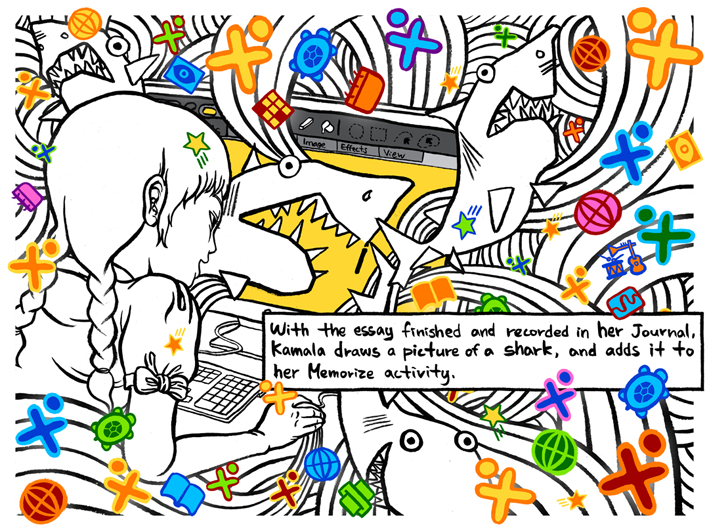 Image Effects View
With the essay finished and recorded in her Journal,
Kamala draws a picture of a shark, and adds it to
her Memorize activity.